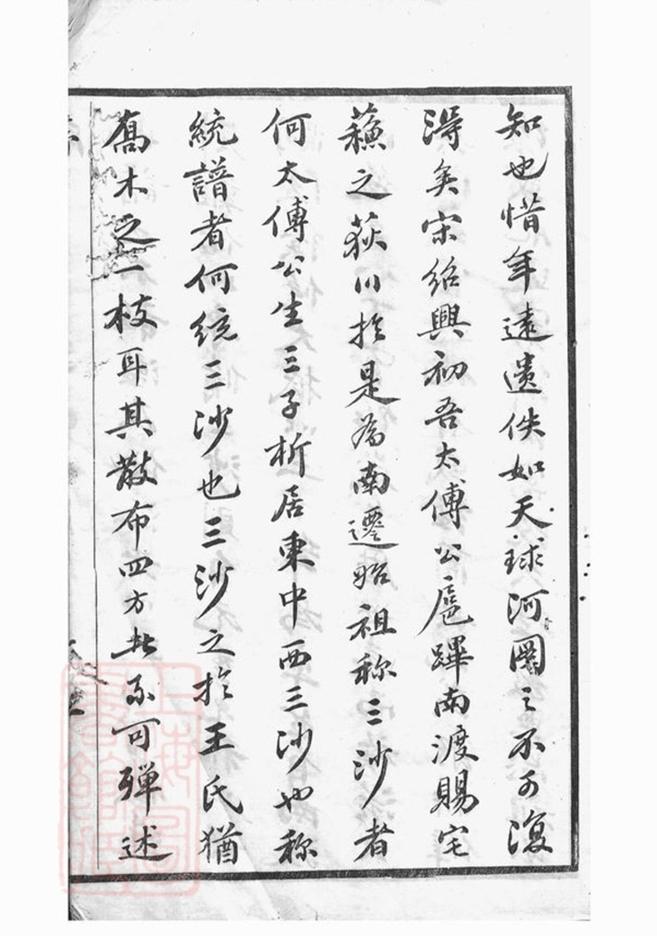 知也惜年遠遺佚如天球河圖之不可復
得矣宋紹興初吾太傅公扈蹕南渡賜宅
蘓之荻川於是為南遷始祖称三沙者
何太傅公生三子析居東中西三沙也称
統譜者何統三沙也三沙之於王氏猶
喬木之一枝耳其散布四方此不可殫述